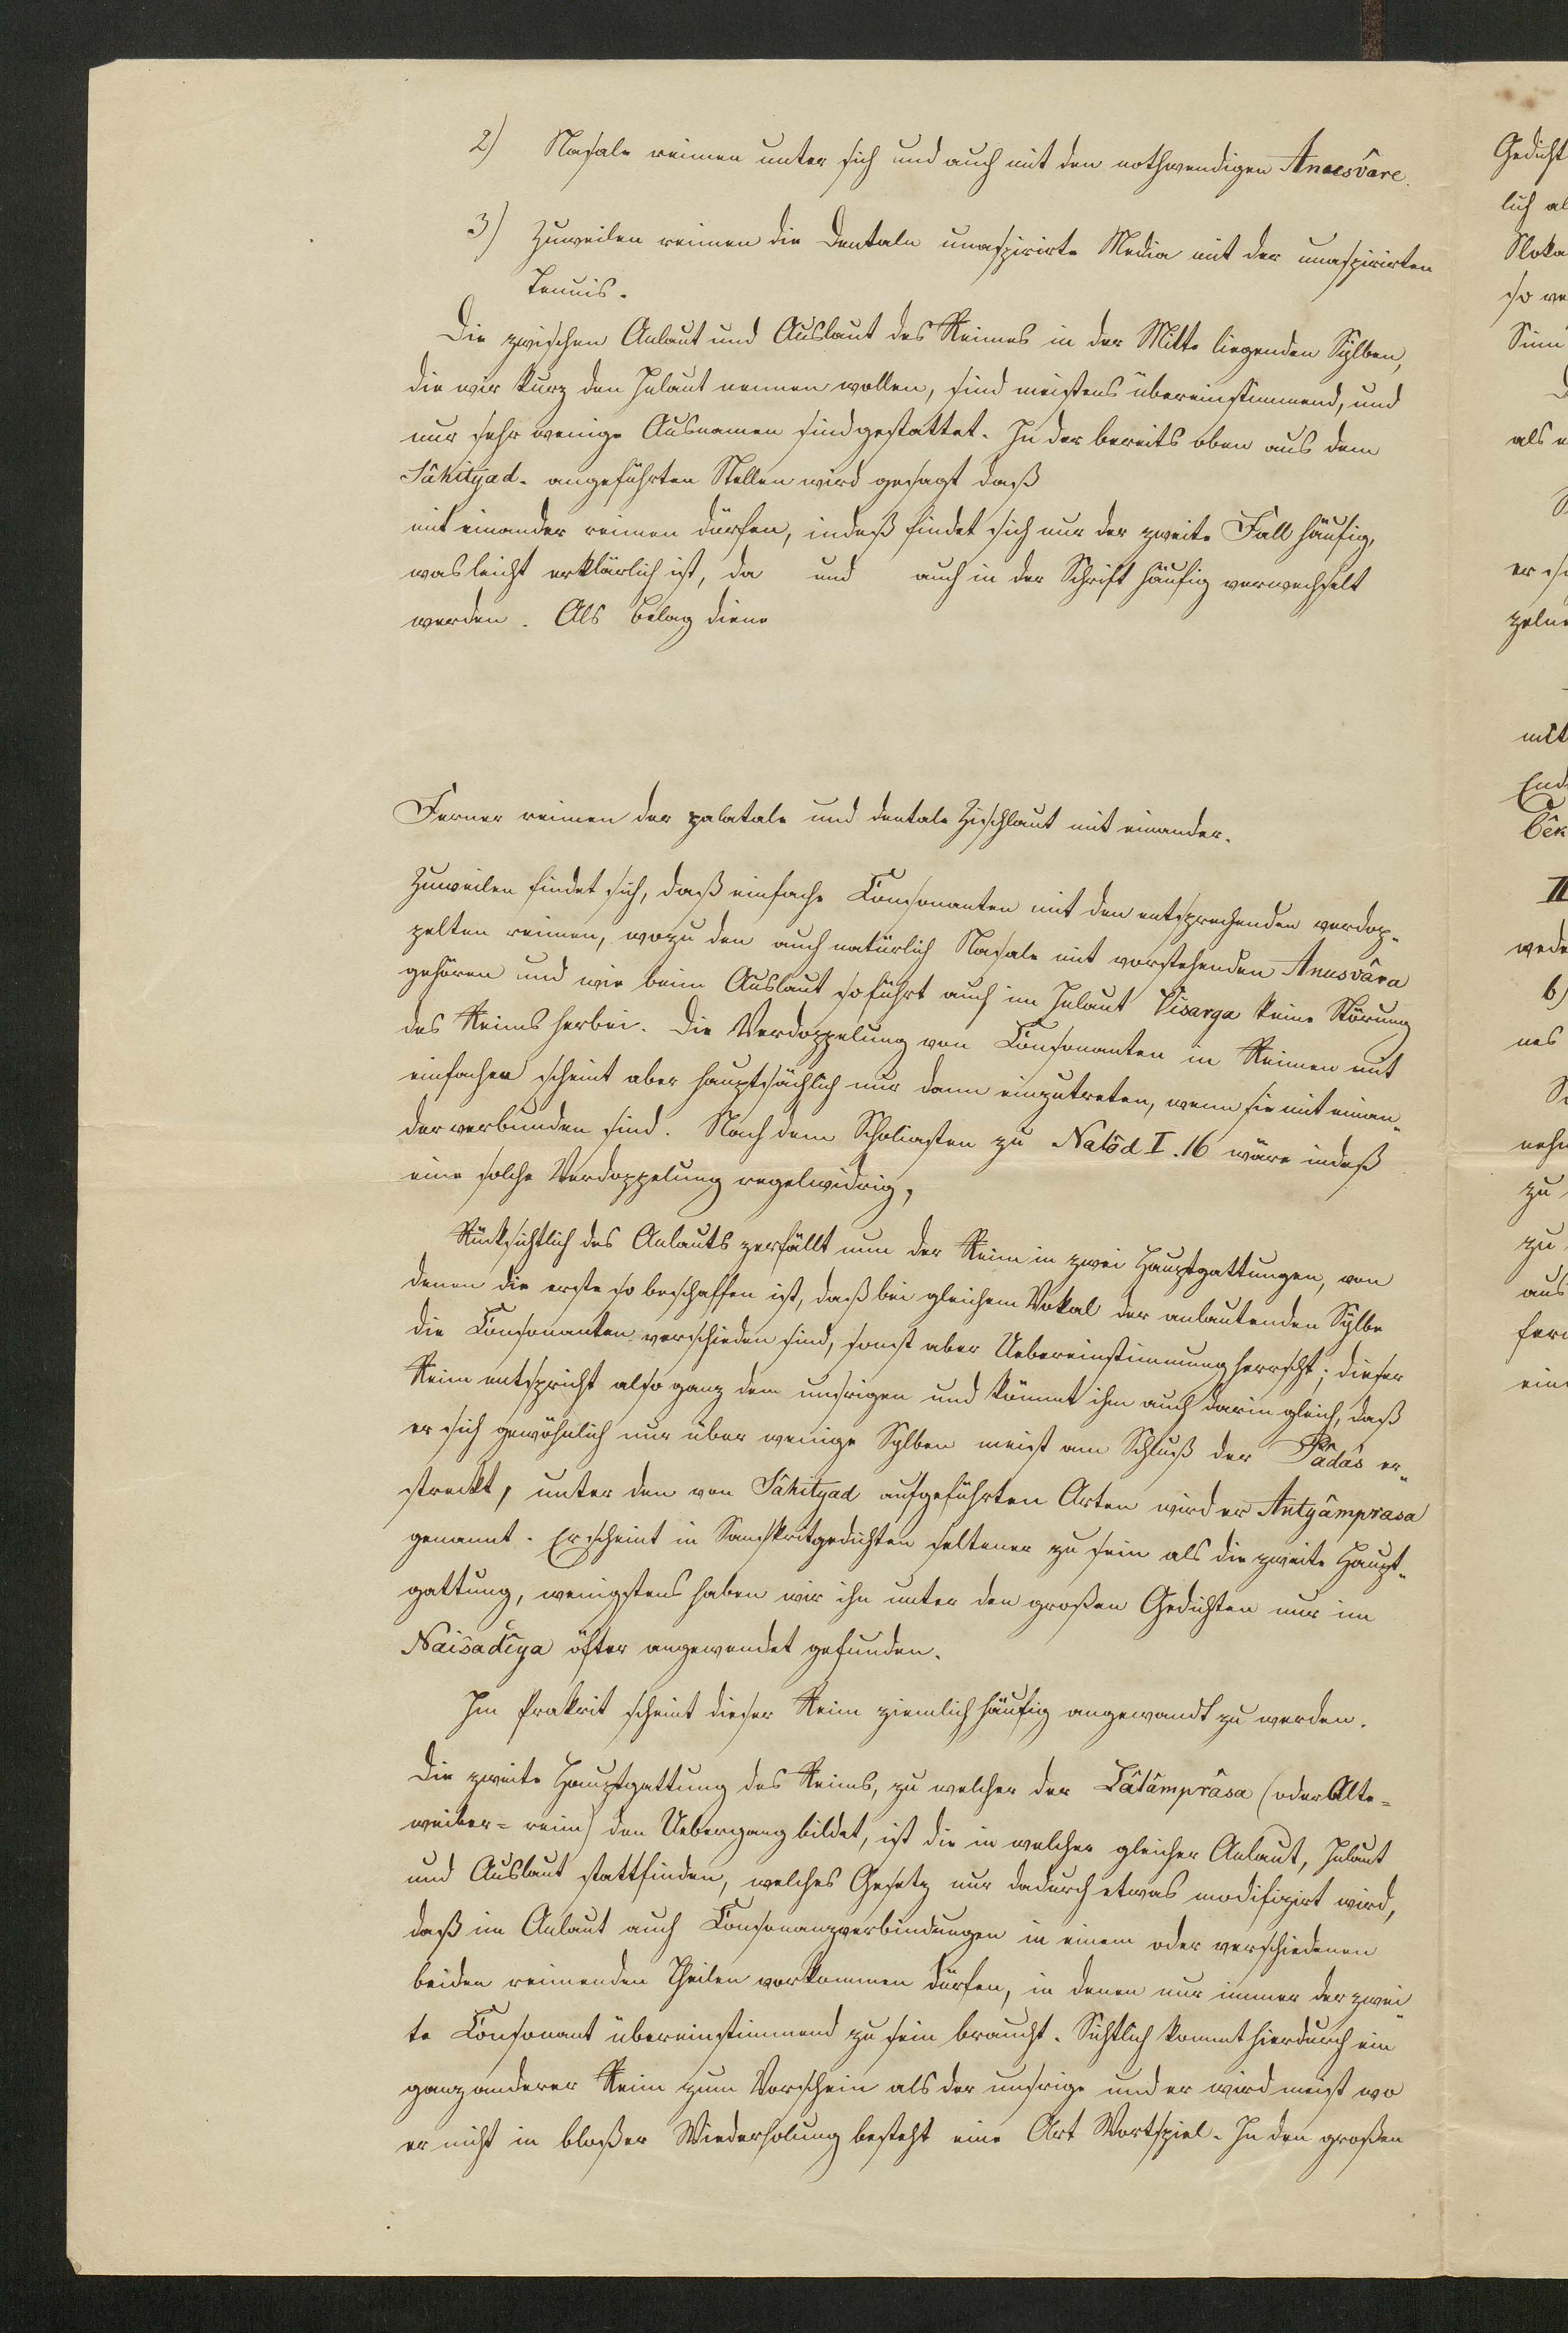 2) Nasale reimen unter sich und auch mit den nothwendigen Anusvâre.
3) Zuweilen reimen die Dentale unaspirirte Media mit der unaspirirten
Tenuis.
Die zwischen Anlaut und Auslaut des Reimes in der Mitte liegenden Sylben,
die wir kurz den Inlaut nennen wollen, sind meistens übereinstimmend, und
nur sehr wenige Ausnamen sind gestattet. In der bereits oben aus dem
Sâhityad. angeführten Stellen wird gesagt daß
mit einander reimen dürfen, indeß findet sich nur der zweite Fall häufig,
was leicht erklärlich ist, da und auch in der Schrift häufig verwechselt
werden. Als Belag diene
Ferner reimen der palatale und dentale Zischlaut mit einander.
Zuweilen findet sich, daß einfache Consonanten mit den entsprechenden verdop-
pelten reimen, wozu den auch natürlich Nasale mit vorstehenden Anusvâra
gehören und wie beim Auslaut so führt auch im Inlaut Visarga keine Störung
des Reims herbei. Die Verdoppelung von Consonanten in Reimen mit
einfachen scheint aber hauptsächlich nur dann einzutreten, wenn sie mit einan-
der verbunden sind. Nach dem Scholiasten zu Nalôd I. 16 wäre indeß
eine solche Verdoppelung regelwidrig,
Rücksichtlich des Anlauts zerfällt nun der Reim in zwei Hauptgattungen, von
denen die erste so beschaffen ist, daß bei gleichem Vokal der anlautenden Sylbe
die Consonanten verschieden sind, sonst aber Uebereinstimmung herrscht; dieser
Reim entspricht also ganz dem unsrigen und kömmt ihm auch darin gleich, daß
er sich gewöhnlich nur über wenige Sylben meist am Schluß der Pâdâs er-
streckt, unter den von Sâhityad aufgeführten Arten wird er Antyâmprasa
genannt. Er scheint in Sanskritgedichten seltener zu sein als die zweite Haupt-
gattung, wenigstens haben wir ihn unter den großen Gedichten nur im
Naišadîya öfter angewendet gefunden.
Im Prakrit scheint dieser Reim ziemlich häufig angewandt zu werden.
Die zweite Hauptgattung des Reims, zu welcher der Lâtâmprâsa (oder Alte=
weiber=reim) den Uebergang bildet, ist die in welcher gleicher Anlaut, Inlaut
und Auslaut stattfinden, welches Gesetz nur dadurch etwas modifizirt wird,
daß im Anlaut auch Consonanzverbindungen in einem oder verschiedenen
beiden reimenden Theilen vorkommen dürfen, in denen nur immer der zwei-
te Consonant übereinstimmend zu sein braucht. Sichtlich kommt hierdurch ein
ganz anderer Reim zum Vorschein als der unsrige und er wird meist wo
er nicht in bloßer Wiederholung besteht eine Art Wortspiel. In den großen
Gedicht
lich al
Sloka
so ve
Sinn
als
mit
End
II
b)
nes
zu
zu
aus